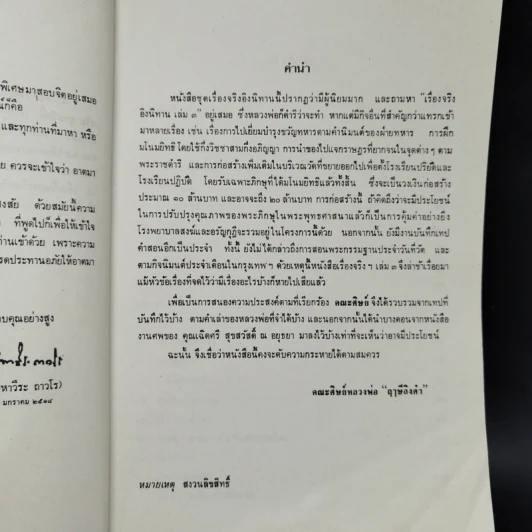 พิเศษมาสอบจิตอยู่เสมอ
และทุกท่านที่มาหา หรือ
ย ควรจะเข้าใจว่า อาตมา
งสัย ด้วยสมัยนี้ความ
ที่พูดไปก็เพื่อให้เข้าใจ
านเข้าด้วย เพราะความ
รดประทานอภัยให้อาตมา
อบคุณอย่างสูง
หาวีระ ถาวโร)
มกราคม ๒๕๑๘
คำนำ
หนังสือชุดเรื่องจริงอิงนิทานนี้ปรากฏว่ามีผู้นิยมมาก และถามหา "เรื่องจริง
อิงนิทาน เล่ม ๓" อยู่เสมอ ซึ่งหลวงพ่อก็ดำริว่าจะทำ หากแต่มีกิจอื่นที่สำคัญกว่าแทรกเข้า
มาหลายเรื่อง เช่น เรื่องการไปเยี่ยมบำรุงขวัญทหารตามคำนิมนต์ของฝ่ายทหาร การฝึก
มโนมยิทธิ โดยใช้กึ่งวิชชาสามกึ่งอภิญญา การนำของไปแจกราษฎรที่ยากจนในจุดต่าง ๆ ตาม
พระราชดำริ และการก่อสร้างเพิ่มเติมในบริเวณวัดที่ขยายออกไปเพื่อตั้งโรงเรียนปริยัติและ
โรงเรียนปฏิบัติ โดยรับเฉพาะภิกษุที่ได้มโนมยิทธิแล้วทั้งสิ้น ซึ่งจะเป็นวงเงินก่อสร้าง
ประมาณ ๑๐ ล้านบาท และอาจจะถึง ๒๐ ล้านบาท การก่อสร้างนี้ ถ้าคิดถึงว่าจะมีประโยชน์
ในการปรับปรุงคุณภาพของพระภิกษุในพระพุทธศาสนาแล้วก็เป็นการคุ้มค่าอย่างยิ่ง
โรงพยาบาลสงฆ์และธัญกูฏิจะรวมอยู่ในโครงการนี้ด้วย นอกจากนั้น ยังมีงานบันทึกเทป
คำสอนอีกเป็นประจำ ทั้งนี้ ยังไม่ได้กล่าวถึงการสอนพระกรรมฐานประจำวันที่วัด และ
ตามกิจนิมนต์ประจำเดือนในกรุงเทพ ฯ ด้วยเหตุนี้หนังสือเรื่องจริง ฯ เล่ม ๓ จึงล่าช้าเรื่อยมา
แม้หัวข้อเรื่องที่จดไว้ว่ามีเรื่องอะไรบ้างก็หายไปเสียแล้ว
เพื่อเป็นการสนองความประสงค์ตามที่เรียกร้อง คณะศิษย์ จึงได้รวบรวมจากเทปที่
บันทึกไว้บ้าง ตามคำเล่าของหลวงพ่อที่จำได้บ้าง และนอกจากนั้นได้นำบางตอนจากหนังสือ
งานศพของ คุณเฉิดศรี สุขสวัสดิ์ ณ อยุธยา มาลงไว้บ้างเท่าที่จะเห็นว่าอาจมีประโยชน์
ฉะนั้น จึงเชื่อว่าหนังสือนี้คงจะดับความกระหายได้ตามสมควร
คณะศิษย์หลวงพ่อ "ฤๅษีลิงดำ"
หมายเหตุ สงวนลิขสิทธิ์